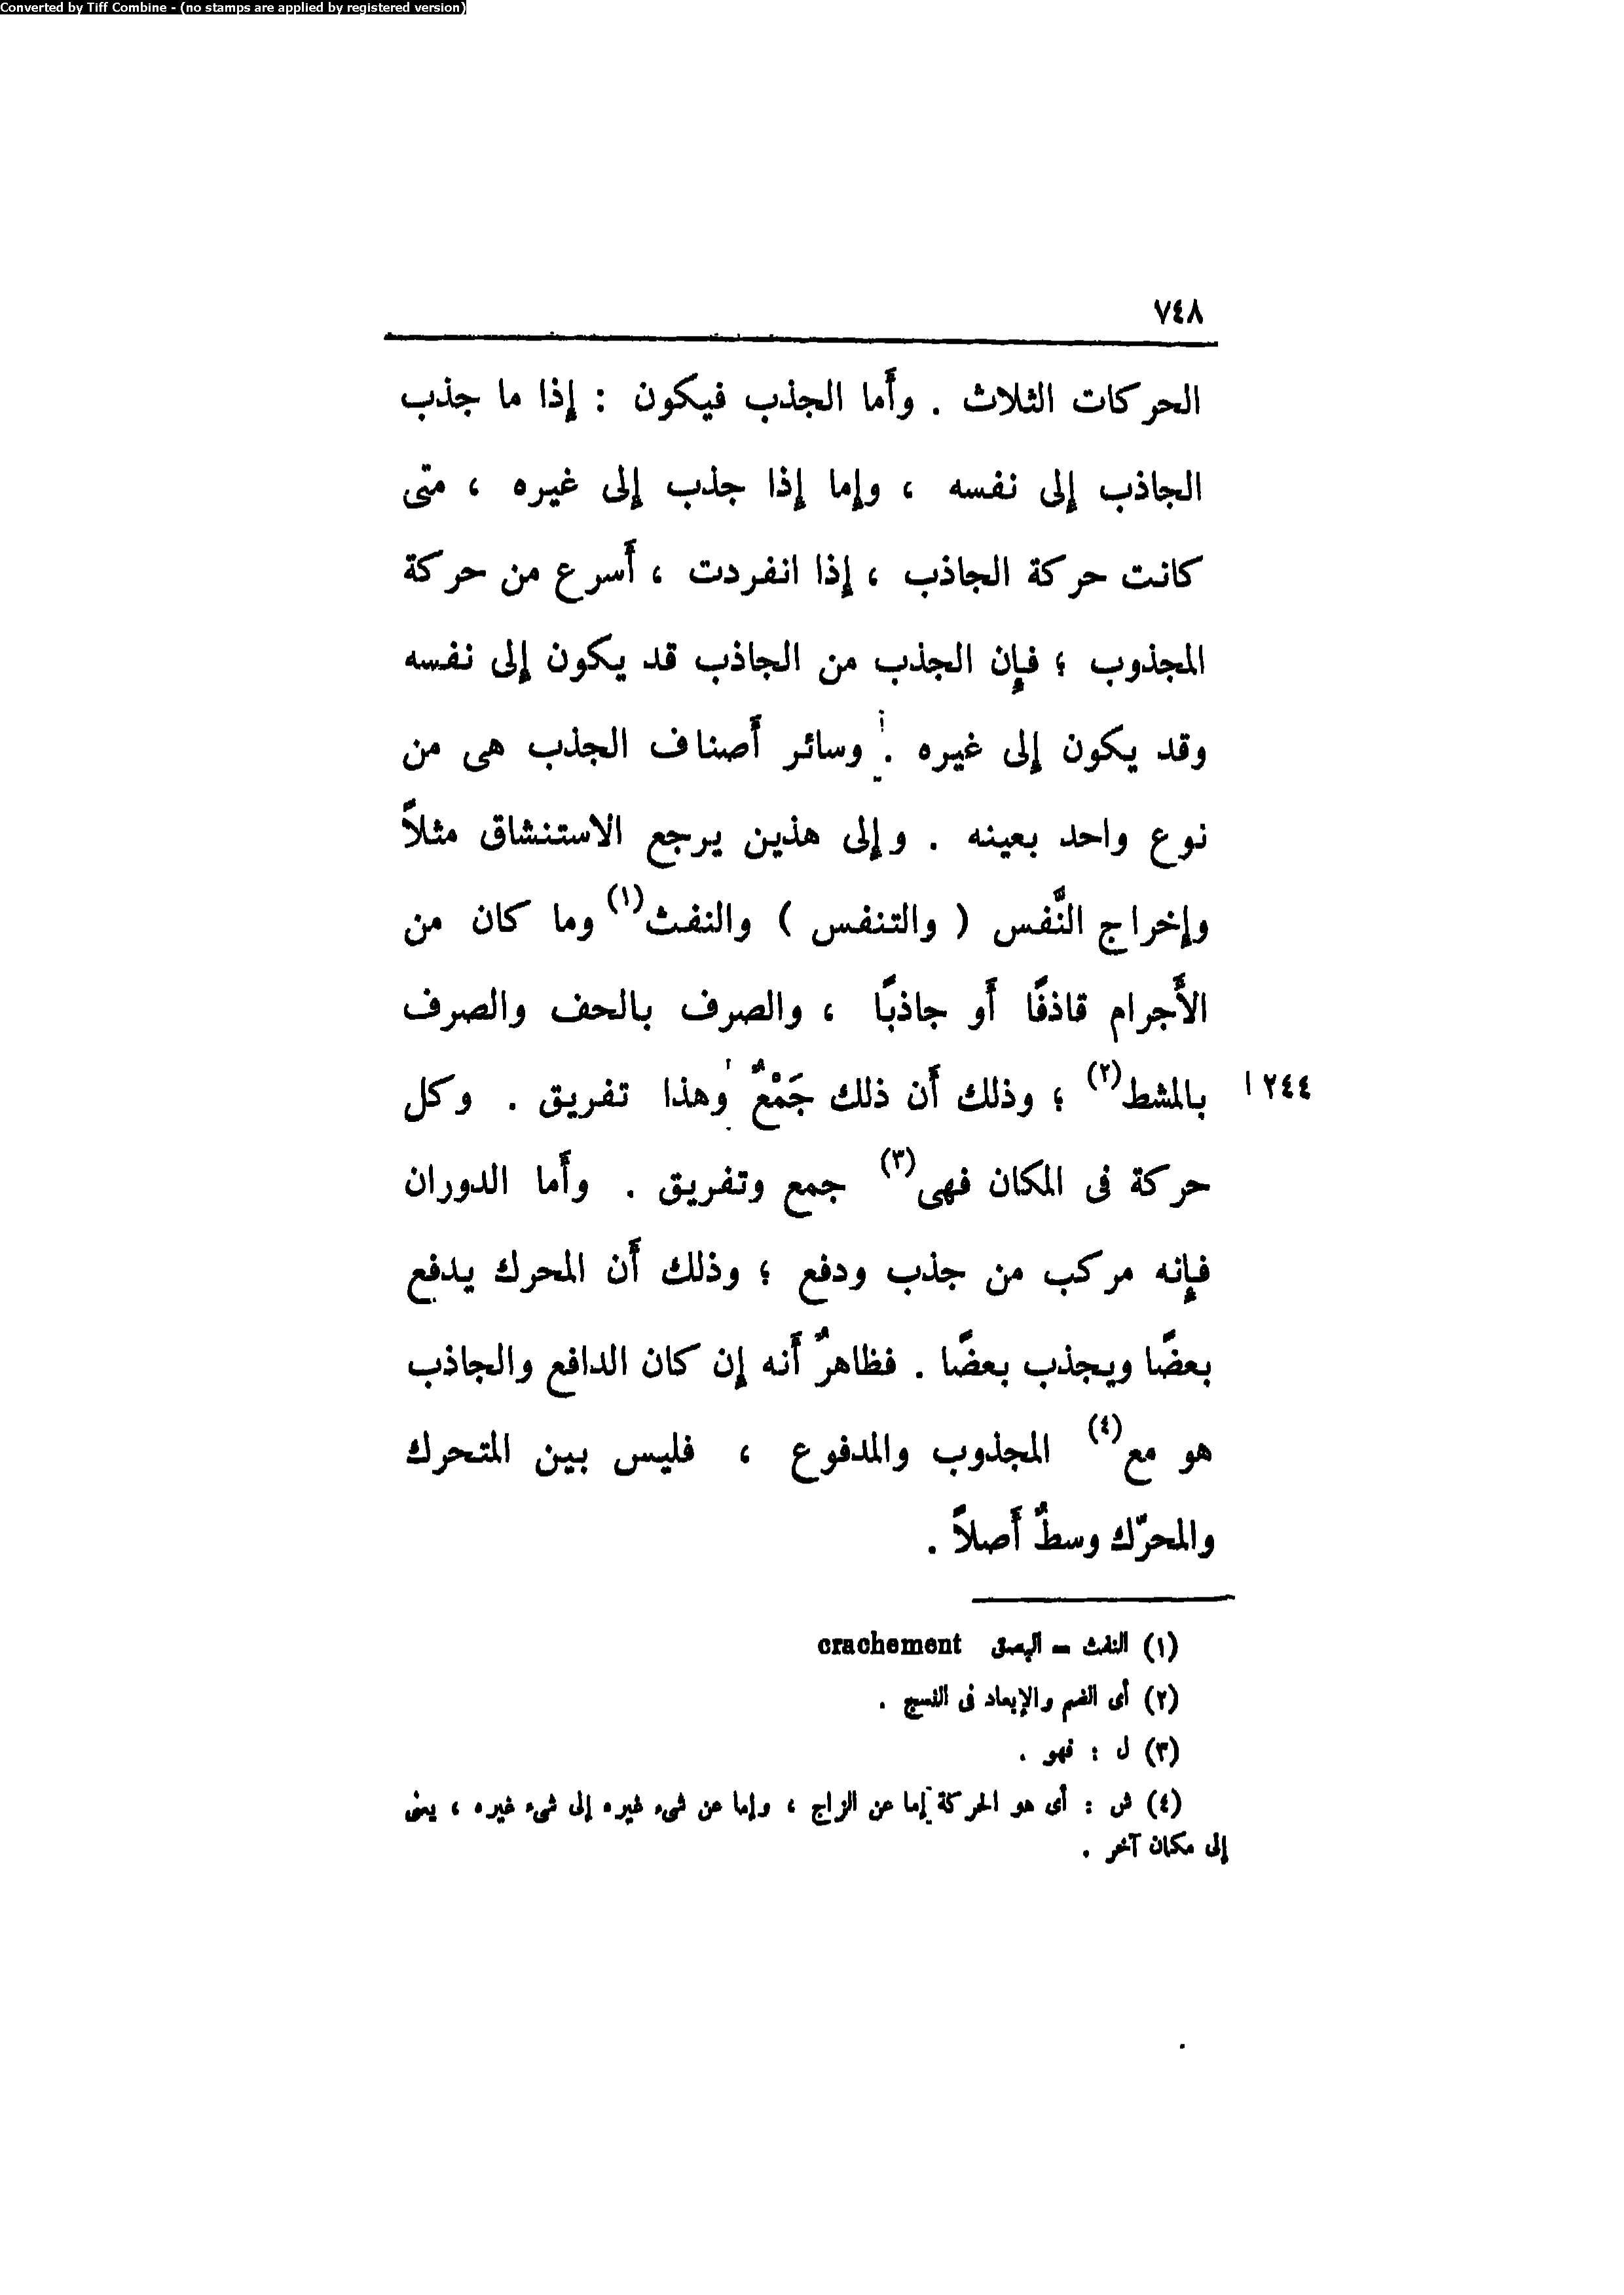 Converted by Tiff Combine - (no stamps are applied by registered version)
٧٤٨
الحركات الثلاث . وأَما الجذب فيكون : إِذا ما جذب
الجاذب إِلى نفسه ، وإِما إِذا جذب إِلى غيره ، متى
كانت حركة الجاذب ، إِذا انفردت ، أَسرع من حركة
المجذوب ؛ فإِن الجذب من الجاذب قد يكون إِلى نفسه
وقد يكون إِلى غيره . وسائر أَصناف الجذب هى من
نوع واحد بعينه . وإِلى هذين يرجع الاستنشاق مثلاً
وإِخراج النَّفس ( والتنفس ) والنفث(١) وما كان من
الأَجرام قاذفًا أَو جاذبًا ، والصرف بالحف والصرف
بالمشط(٢) ؛ وذلك أَن ذلك جَمْعٌ وهذا تفريق . وكل
٢٤٤ ا
حركة فى المكان فهى(٣) جمع وتفريق . وأَما الدوران
فإِنه مركب من جذب ودفع ؛ وذلك أَن المحرك يدفع
بعضًا ويجذب بعضًا . فظاهرٌ أَنه إِن كان الدافع والجاذب
هو مع(٤) المجذوب والمدفوع ، فليس بين المتحرك
والمحرّك وسطٌ أَصلاً .
(١) النفث = البصق crachement
(٢) أى الضم والإبعاد فى النسج .
(٣) ل : فهو .
(٤) ش : أى هو الحركة إما عن الزاج ، وإما عن شىء غيره إلى شىء غيره ، يعنى
إلى مكان آخر .